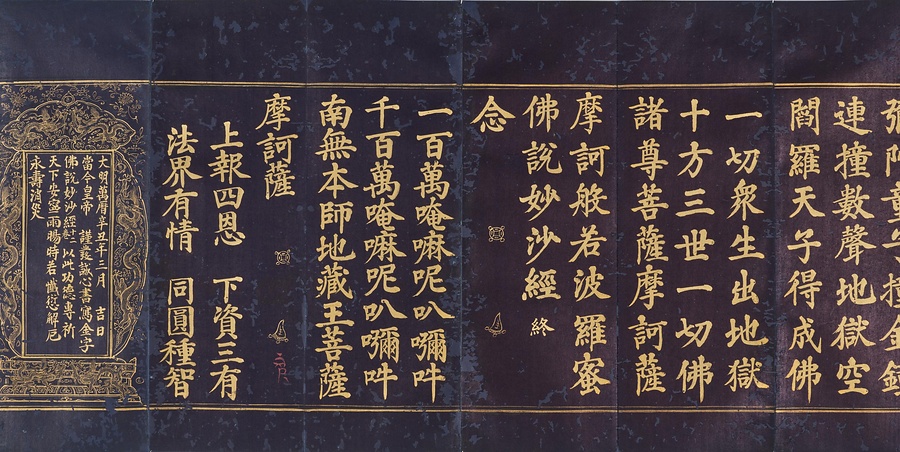 童子撞金
連撞數聲地獄空
閻羅天子得成佛
一切衆生出地獄
十方三世一切佛
諸尊菩薩摩訶薩
摩訶般若波羅蜜
佛說妙沙經 終
念
一百萬唵嘛呢叭彌吽
千百萬唵嘛呢叭彌吽
南無本師地藏王菩薩
摩訶薩
上報四恩 下資三有
法界有情 同圓種智
大明萬曆辛丑年三月 吉日
當今皇帝 謹發誠心喜寫金字
佛說妙沙經 以此功德專祈
天下安寧雨暘時若懺愆解厄
永壽消災